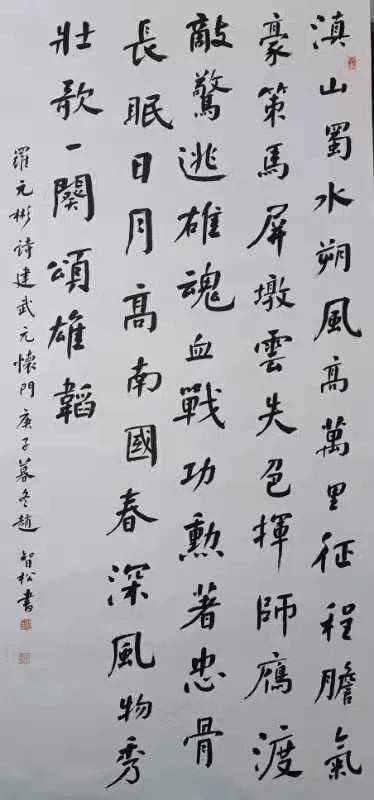 滇山蜀水朔風高萬里征程膽氣
豪策馬屏墩雲失色揮師鴈渡
敵驚逃雄魂血戰功勳著忠骨
長眠日月高南國春深風物秀
壯歌一闋頌雄韜
羅元彬诗建武元懷門庚子暮冬趙智松書